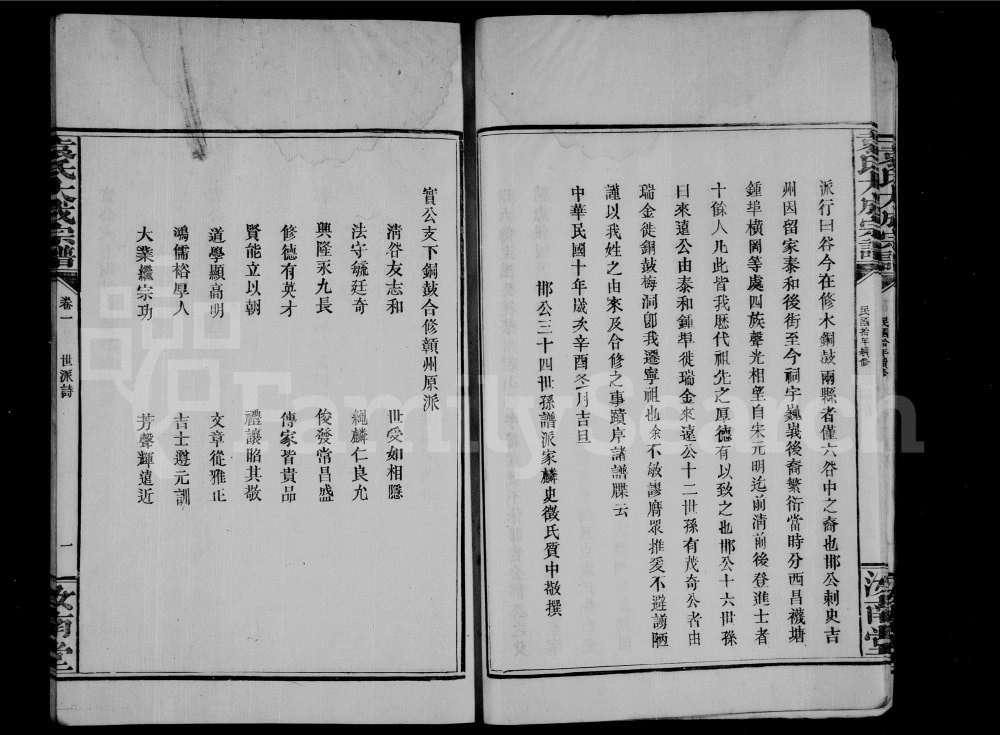 派行曰咎今在修水銅鼓兩縣者僅六咎中之裔也邯公剌史吉
州因留家泰和後街至今祠宇巍峩後裔繁衍當時分西昌襪塘
鍾埠橫岡等處四族聲光相望自宋元明迄前清前後登進士者
十餘人凡此皆我歷代祖先之厚德有以致之也邯公十六世孫
曰來遠公由泰和鍾埠徙瑞金來遠公十二世孫有茂奇公者由
瑞金徙銅鼓梅洞卽我遷寧祖也余不敏謬膺眾推爰不避謭陋
謹以我姓之由來及合修之事蹟序諸譜牒云
中華民國十年歲次辛酉冬月吉旦
邯公三十四世孫譜派家麟史徵氏質中敬撰
袁氏大成宗譜
民國拾年續修
汝南堂
實公支下銅鼓合修贛州原派
清咎友志和 世受如相隱
法守毓廷奇 繩麟仁良允
興隆永九長 俊發常昌盛
修德有英才 傳家皆貴品
賢能立以朝 禮讓昭其敬
道學顯高明 文章從雅正
鴻儒裕學人 吉士遵元訓
大業繼宗功 芳聲輝遠近
袁氏大成宗譜
卷一 世派詩
一
汝南堂
FamilySearch